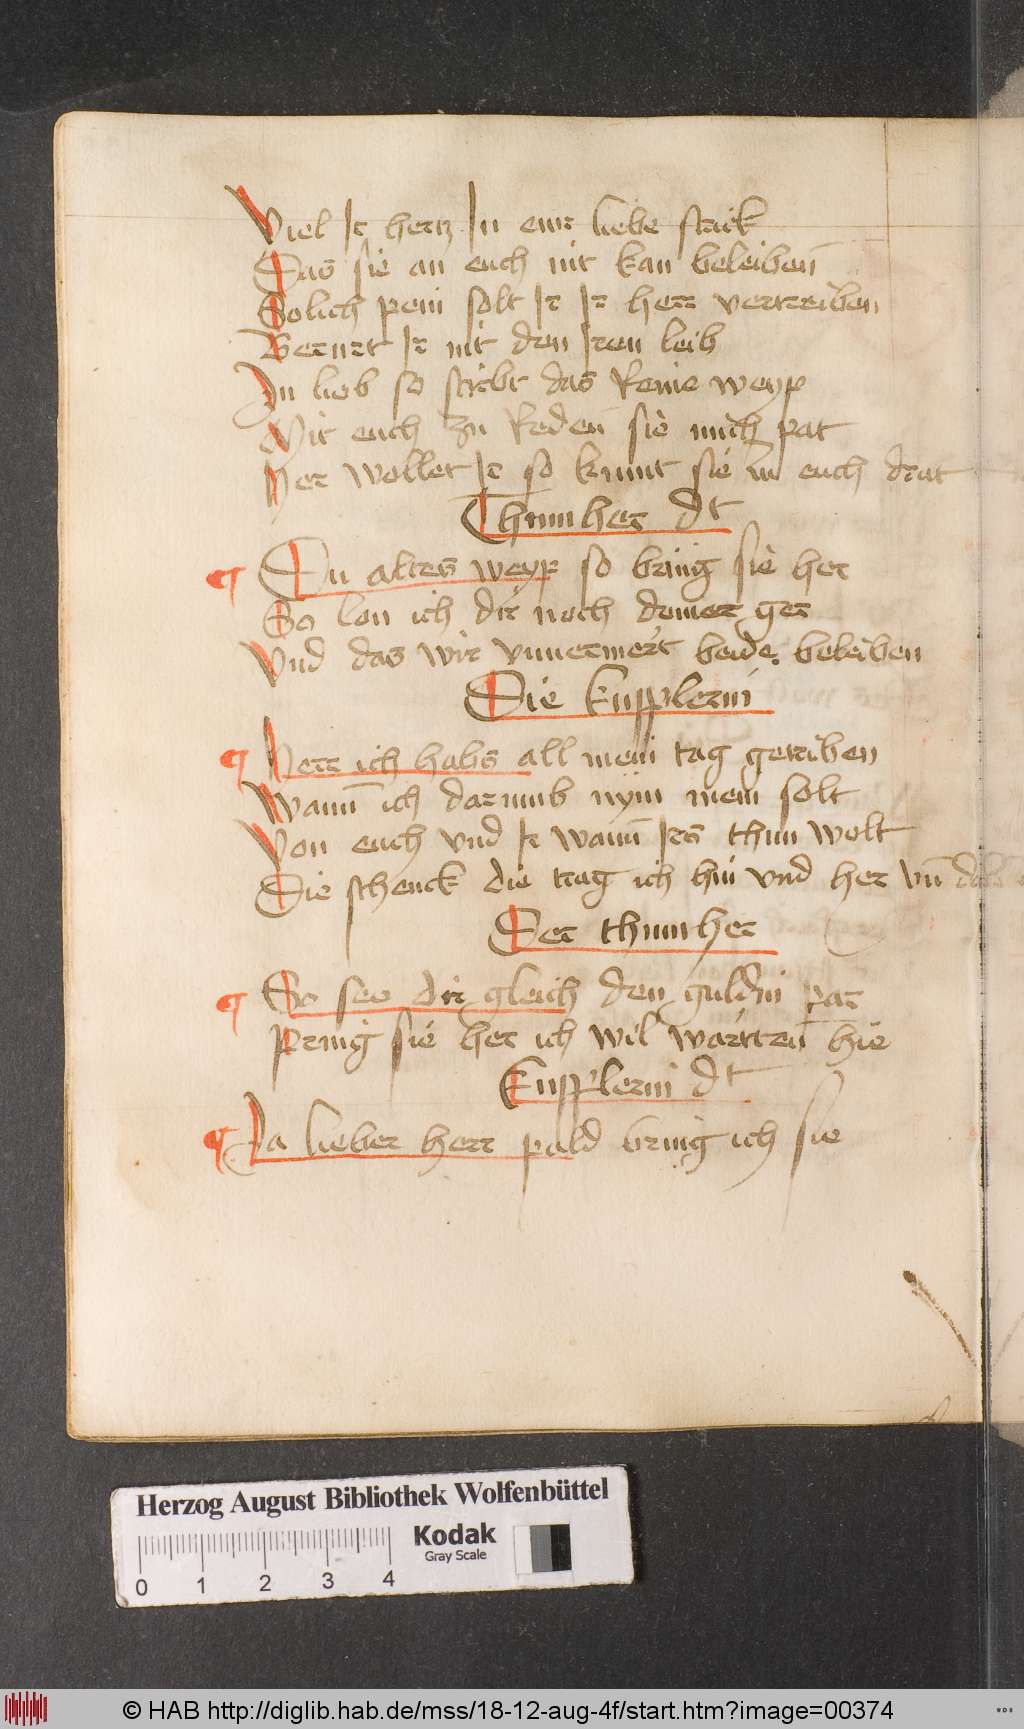 Viel Ir hertz In ewr liebe strick
Das sie an euch nit kan beleiben̄
Solich pein solt Ir Ir herr vertreiben
Beruͦrt Ir nit den Iren leib
In lieb so stirbt das Reine weyp
Mit euch zu Reden̄ sie mich pat
Her wollet Ir so kumt sie zu euch drat
Thumher dt
¶ Du altes weyp so bring sie her
So lon ich dir noch deiner ger
Vnd das wir vnuermert beide beleiben
Die kupplerin
¶ Herr ich habs all mein tag getriben
Wann̄ ich darumb nym mein solt
Von euch vnd Ir wann̄ Irs thun wolt
Die schenck die trag ich hin vnd her vn̄
Der thumher
¶ So see dir gleich den guldin par
Pring sie her ich wil wartten̄ hie
Kupplerin dt
¶ Ja lieber herr pald bring ich sie
Herzog August Bibliothek Wolfenbüttel
Kodak
Gray Scale
0 1 2 3 4
© HAB http://diglib.hab.de/mss/18-12-aug-4f/start.htm?image=00374